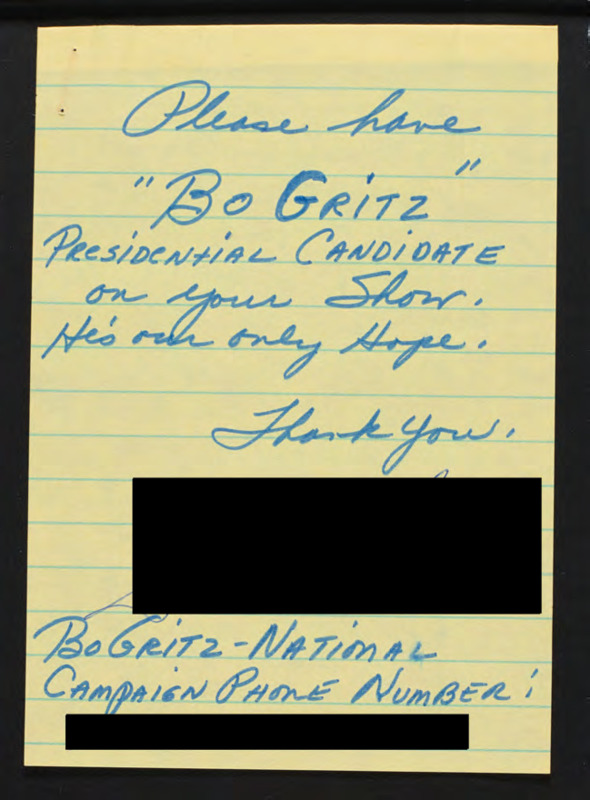 Please have
"Bo GRITZ"
PRESIDENTIAL CANDIDATE
on your Show.
He's our only Hope.
Thank you.
BO GRITZ-NATIONAL
CAMPAIGN PHONE NUMBER: